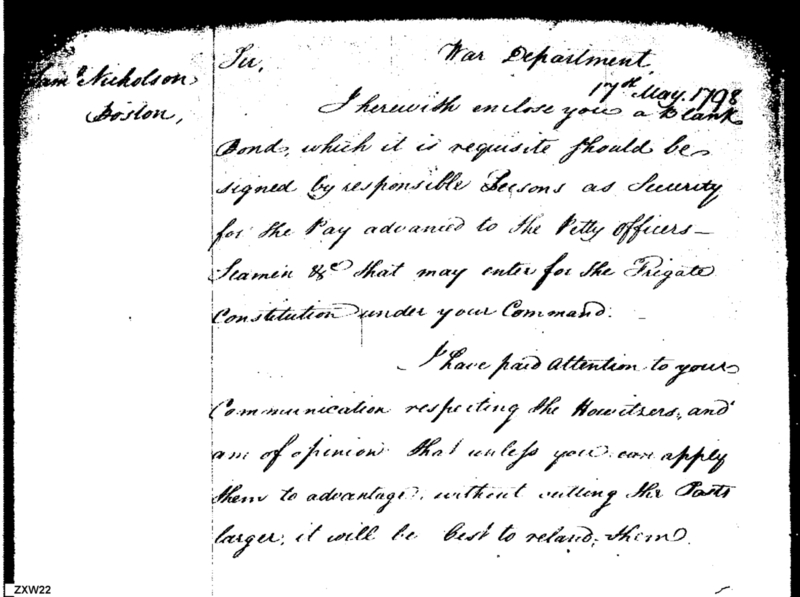 Sam^l Nicholson
Boston,
Sir,
War Department
17th May. 1798
I herewith enclose you a Blank
Bond, which it is requisite should be
signed by responsible Persons as Security
for the Pay advanced to the Petty Officers—
Seamen &c that may enter for the Frigate
Constitution under your Command.
I have paid Attention to your
Communication respecting the Howitzers, and
am of opinion that unless you can apply
them to advantage, without cutting the Ports
larger, it will be best to reland them.
ZXW22